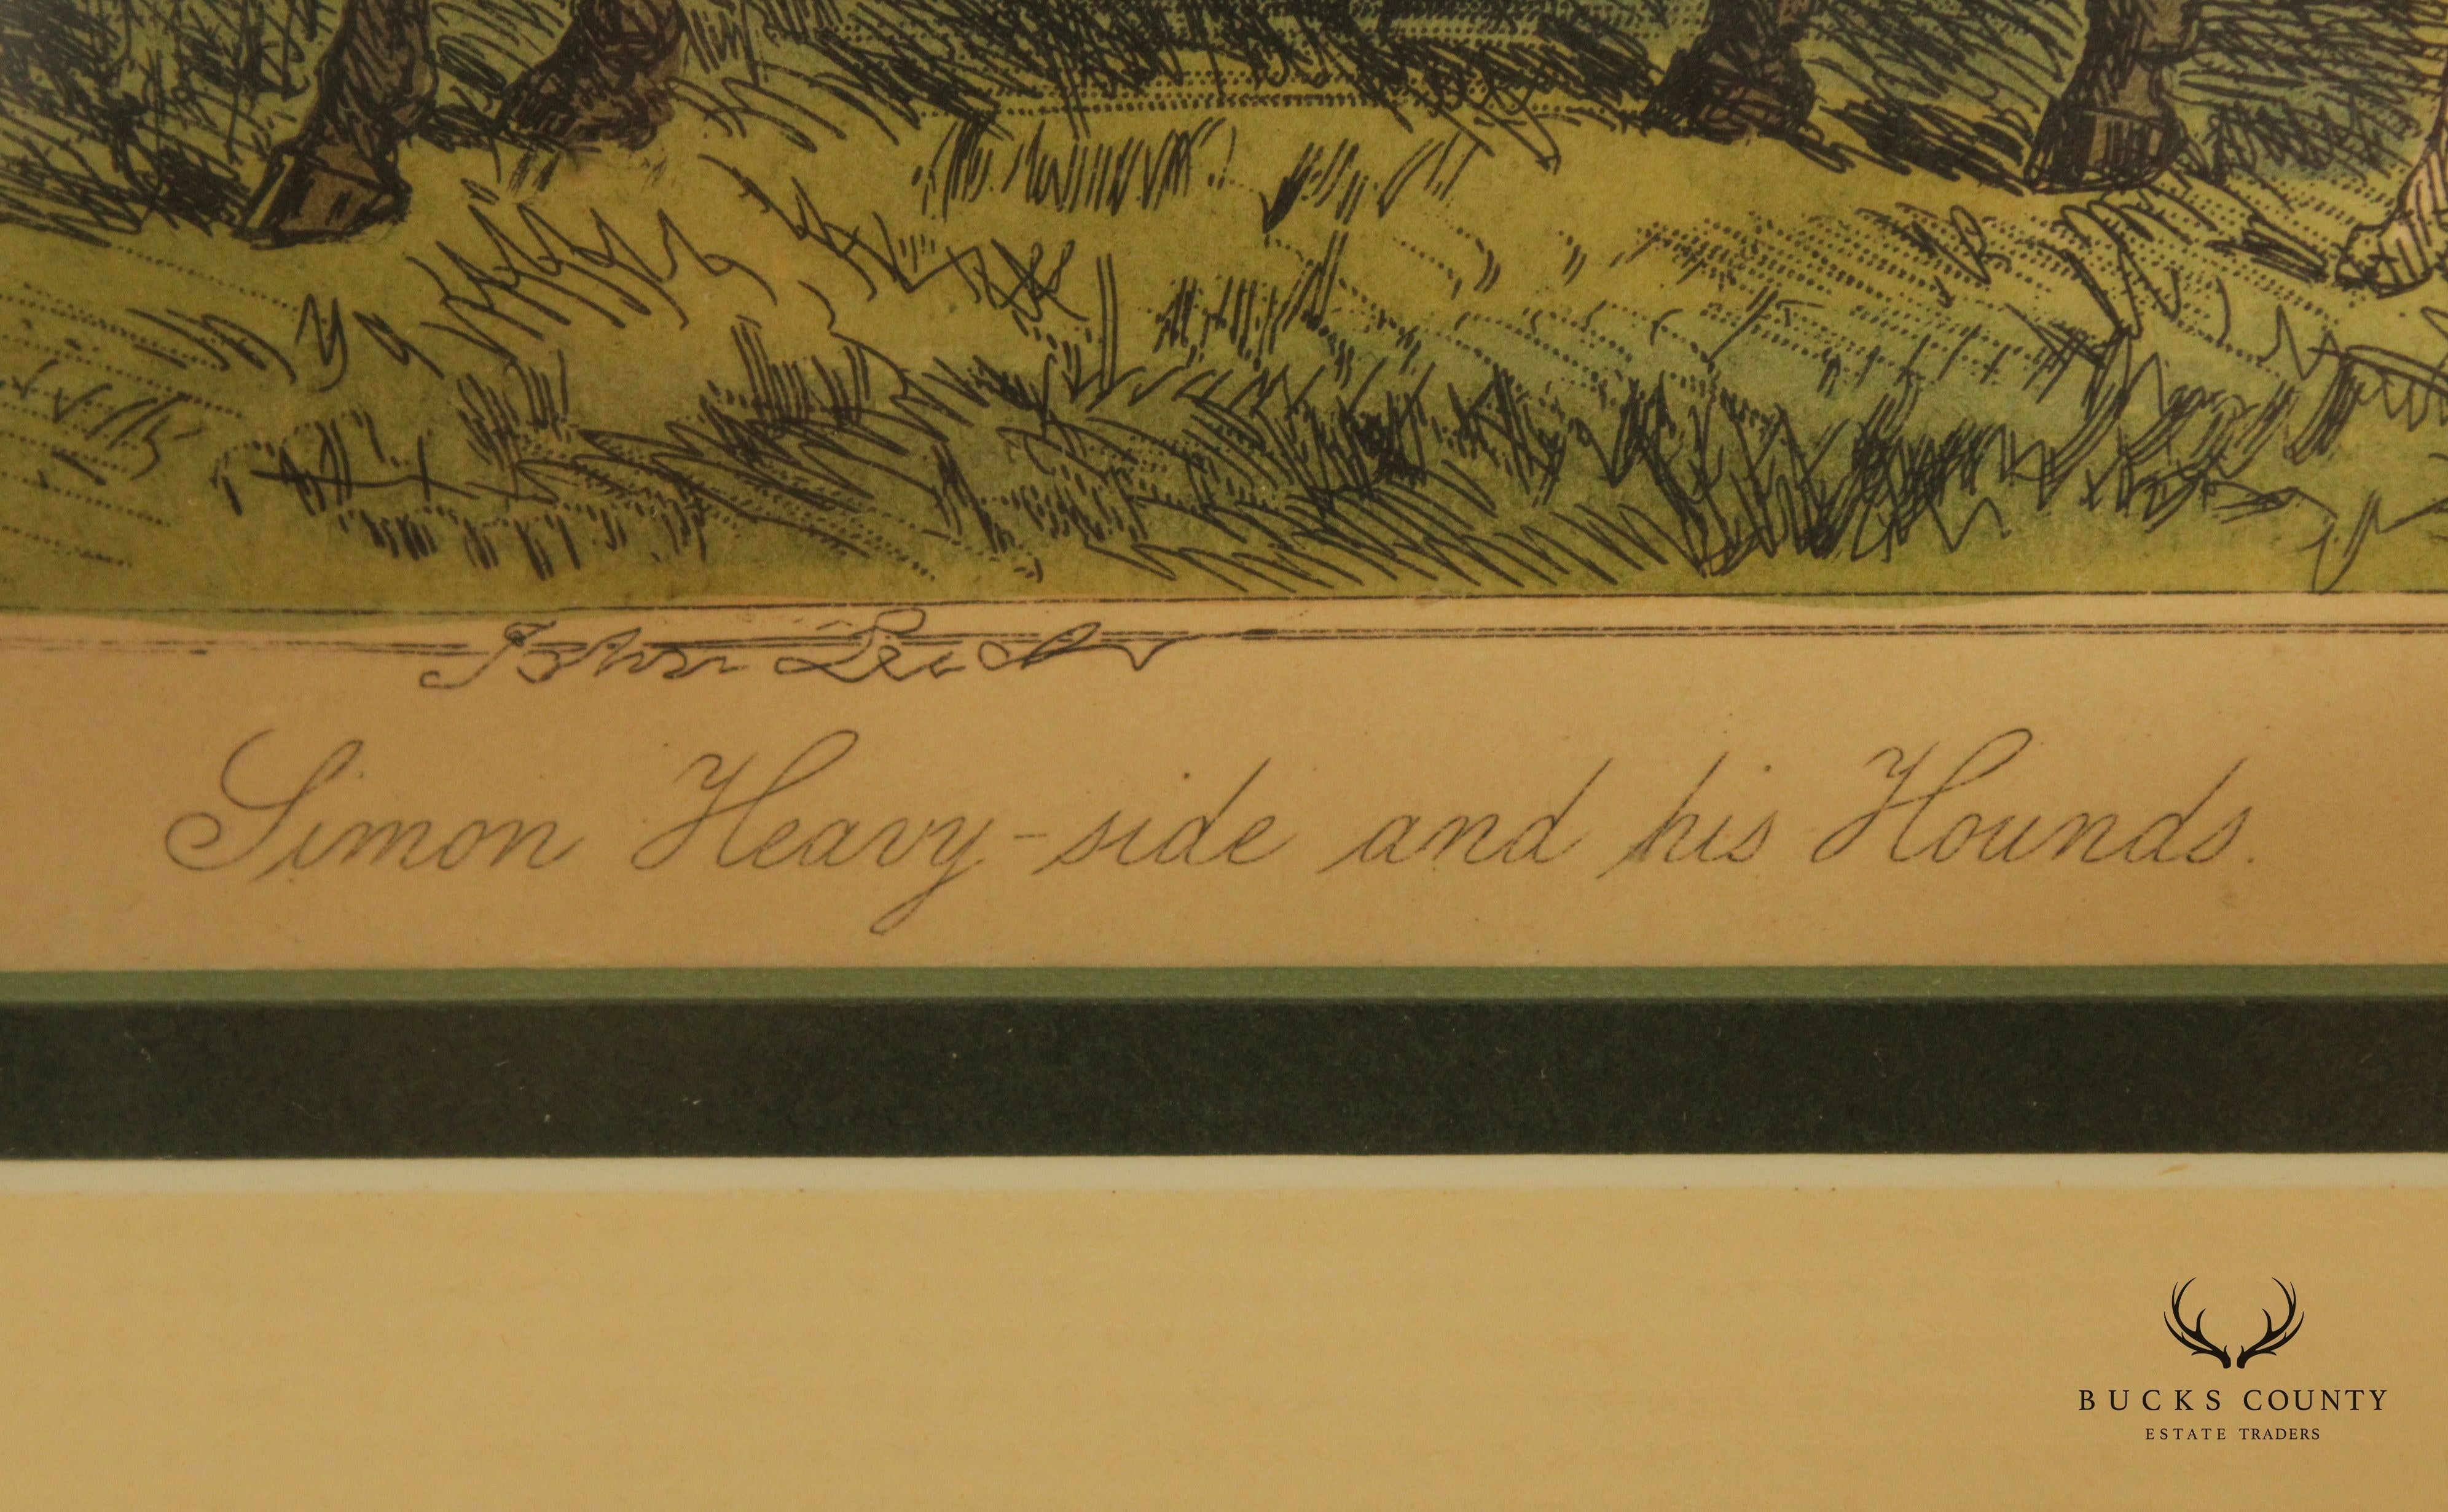 John Leech
Simon Heavy-side and his Hounds.
BUCKS COUNTY
ESTATE TRADERS